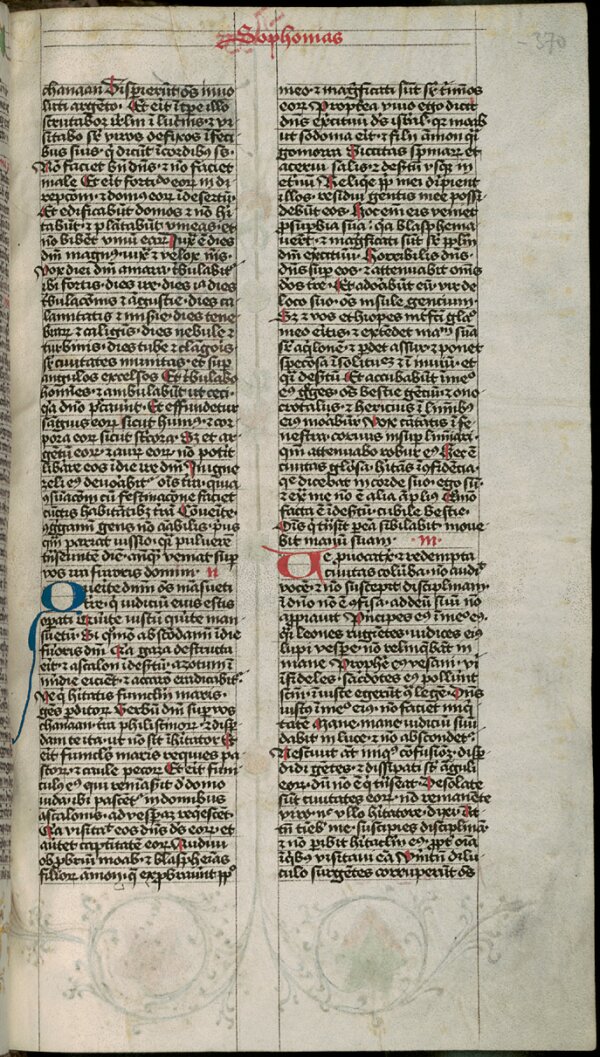 Sophomas
370
chanaan Disperierūt os̄ muo
luti argēto· Et eit ī tꝑe illo
scrutabor irlm̄ ī lucīnis· ⁊ vi
sitabo sr̄ viros defixos ī feci
bus suis· q̄ dicūt ī cordibꝰ ss·
Nō faciet bn̄ dn̄s· ⁊ nō faciet
male Et eit fortido eoꝝ in di
repcōm· ⁊ domꝰ eoꝝ ī desertū·
Et edificabūt domos ⁊ nō hi
tabūt· ⁊ plātabūt vineas· et
nō bibēt vinū eaꝝ Iux̄ ē dies
dm̄ magnꝰ· iux̄ ⁊ velox nīs·
Vox diei dm̄ amara· tbulabit᷑
ibi fortis· dies ire· dies ia dies
tbulacōnis ⁊ āgustie· dies ca
lamitatis ⁊ misie· dies tene
braꝝ ⁊ caligīs· dies nebule ⁊
turbinis· dies tube ⁊ clāgoris·
sr̄ ciuitates munitas· et suꝑ
angulos excelsos Et tbulabo
homīes· ⁊ ambulabūt ut ceci·
qa dn̄o pc̄auīt· Et effundetur
sāguis eoꝝ sicut humꝰ· ⁊ cor
pora eoꝝ sicut st̄cora· Sz et ar
gētū eoꝝ· ⁊ auꝝ eoꝝ nō potit
libare eos ī die ire dm̄ In igne
zeli eꝰ deuorabit᷑ oīs tra· quia
9suacōm cū festinacōne faciet
cūctis habitātibꝫ trā Cōueite·
9ggam̄ gens nō aābilis· pꝰus
qm̄ pariat iussio· qi puluerē
trāseunte diē· anqꝫ veniat suꝑ
vos ira furoris domini· II
Querite dnm̄ oēs māsueti
tre· q̄ iudiciū eius estis
opati Quite iustū quite man
suetū· Si qͦmo abscōdami ī die
furoris dm̄ Qa gaza destructa
eit· ⁊ ascalon ī desertū· azotum ī
mīdie eiciēt· ⁊ accaro eradicabit᷑·
Ve q̄ hitatis funiclm̄ maris·
gēs ꝑditoꝝ Verbū dm̄ suꝑ vos
chanaan· tra philistinoꝝ· ⁊ disꝑ
dam te ita· ut nō sit īhitator Et
eit funiclꝰ maris reqiues pa
stoꝝ· ⁊ caule pecoꝝ Et eit funi
culꝰ eꝰ qui remāsit d domo
iuda· ibi pascēt· in domibus
ascalonis· ad vesꝑaꝫ reqescet·
Qa visitat eos dn̄s ds̄ eoꝝ· et
auitet captitatē eoꝝ Audiui
obꝓbriū moab· ⁊ blasphēias
filioꝝ amon· q̄ exꝓbrauūt pp̄lo
meo· ⁊ magficati sūt sr̄ t̄minos
eoꝝ Propterea viuo ego dicit
dn̄s exercituū ds̄ isrl̄· qꝛ moab
ut sodoma eit· ⁊ filii āmon qi
gomorra Siccitas spinaꝝ· et
acerui salis· ⁊ desertū vsqꝫ in
etnū Reliqie pp̄li mei diripient
illos· residui gentis mee possi
debūt eos Hoc em̄ eis veniet
ꝓ suꝑbia sua· qa blasphema
uert· ⁊ magficati sūt sr̄ pp̄lm̄
dm̄ exercituū Horribilis dn̄s·
dn̄s suꝑ eos· ⁊ attenuabit omēs
dos tre· Et adorabūt eū· vir de
loco suo· oēs īsule gencium·
Sz ⁊ vos ethiopes inter̄fcti gladio
meo eitis· ⁊ extēdet manū suā
sr̄ aqilonē· ⁊ ꝑdet assur· ⁊ ponet
speciosā ī solitudinē ⁊ ī inuiū· et
qi desertū Et accubabūt ī meº
eꝰ gges· oēs bestie gētiū· ⁊ ono
crotalus· ⁊ hericius ī liminibꝰ
eiꝰ moabūt Vox cātātis ī fe
nestra· coruus insuꝑ limiari·
qm̄ attenuabo robur eꝰ Hec ē
ciuitas gl̄osa· hitās ī cōfidētia·
que dicebat in corde suo· ego sū·
⁊ exͭ me nō ē alia āplius Qmo
facta ē ī desertū· cubile bestie·
Ois q̄ trāsit ꝑ eā sibilabit· moue
bit manū suam· III·
Ve ꝓuocatrix· ⁊ redempta
ciuitas colūba· nō audiit
vocē· ⁊ nō suscepit disciplinam·
ī dn̄o nō ē 9fisa· ad deū suū nō
appiauit Pncipes eꝰ ī meº eꝰ·
qi leones rugiētes· iudices eiꝰ
lupi vesꝑe· nō relinqbāt in
mane Prophē eꝰ vesani· viri
īfideles· sacdotes eꝰ polluūt
scm̄· īiuste egerūt ꝯ legē Dn̄s
iustꝰ ī meº eiꝰ· nō faciet iniqi
tatē Mane mane iudiciū suū
dabit in luce· ⁊ nō abscondet᷑·
Nesciuit at̄ iniqꝰ confusiōeꝫ· disꝑ
didi gētes· ⁊ dissipati sūt āguli
eoꝝ· dū nō ē q̄ trāseat Desolate
sūt ciuitates eoꝝ· nō remanēte
viro· nec vllo hītatore· Dixi· At
tn̄ timeb me· suscipies disciplinā·
⁊ nō ꝑibit hitaclm̄ eꝰ· ꝓpt oīa
ī qibꝫ visitaui eā Verūtn̄ dilu
culo surgētes corruperūt oēs